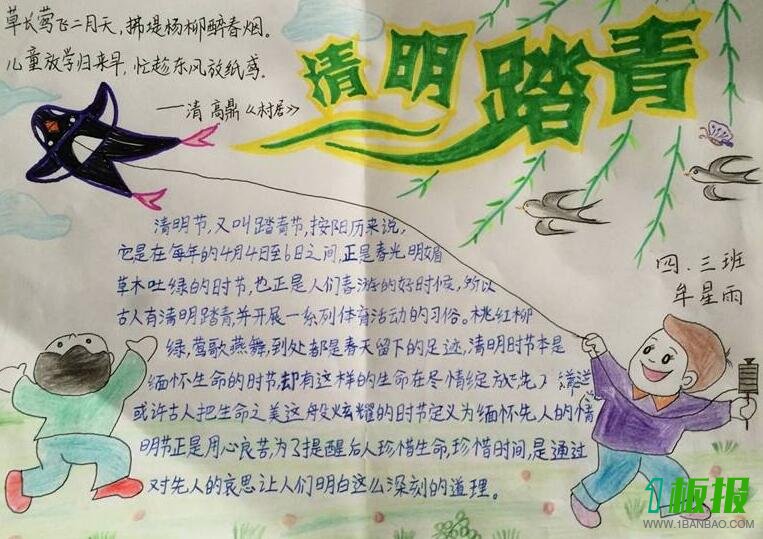 草长莺飞二月天,拂堤杨柳醉春烟。
儿童放学归来早,忙趁东风放纸鸢.
——清 高鼎《村居》
清明踏青
清明节,又叫踏青节,按阳历来说,
它是在每年的4月4日至6日之间,正是春光明媚
草木吐绿的时节,也正是人们春游的好时候,所以
古人有清明踏青,并开展一系列体育活动的习俗。桃红柳
绿,莺歌燕舞,到处都是春天留下的足迹,清明时节本是
缅怀生命的时节,却有这样的生命在尽情绽放
或许古人把生命之美这般炫耀的时节定义为缅怀先人的情
明节正是用心良苦,为了提醒后人珍惜生命,珍惜时间,是通过
对先人的哀思让人们明白这么深刻的道理。
四.三班
牟星雨
1板报
WWW.1BANBAO.COM